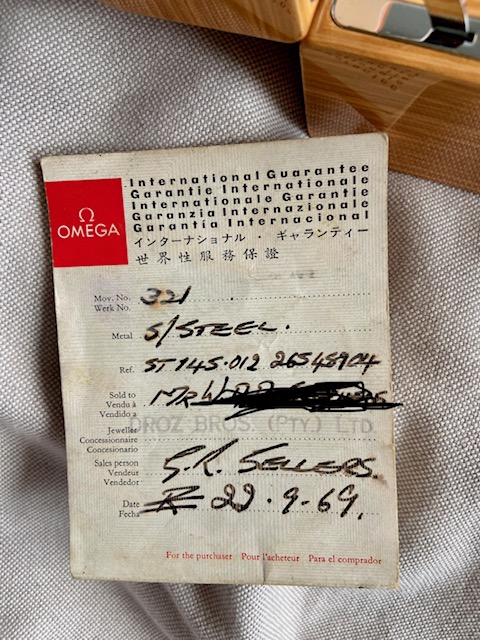 International Guarantee
Garantie Internationale
Internationale Garantie
Garanzia Internazionale
Garantía Internacional
インターナショナル・ギャランティー
世界性服務保證
Ω
OMEGA
Mov. No. 321
Werk No.
Metal S/STEEL.
Ref. ST 145.012 26548904
Sold to MR
Vendu à
Vendido a
DROZ BROS. (PTY.) LTD
Jeweller
Concessionnaire
Concesionario
Sales person G.R. SELLERS.
Vendeur
Vendedor
Date 29.9-69.
Fecha
For the purchaser Pour l'acheteur Para el comprador